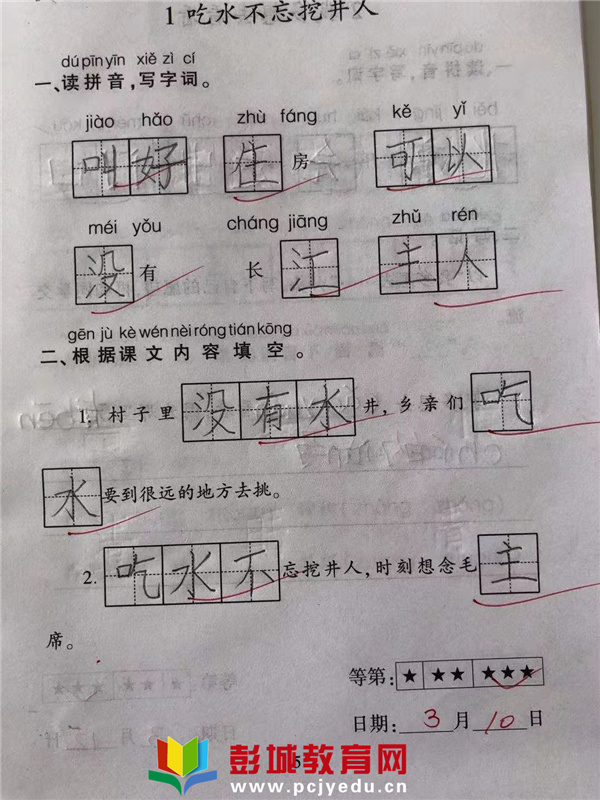 1 吃水不忘挖井人
dú pīn yīn xiě zì cí
一、读拼音,写字词。
jiào hǎo zhù fáng kě yǐ
叫好 住房 可以
méi yǒu cháng jiāng zhǔ rén
没有 长江 主人
gēn jù kè wén nèi róng tián kōng
二、根据课文内容填空。
1. 村子里没有水井,乡亲们吃
水要到很远的地方去挑。
2. 吃水不忘挖井人,时刻想念毛主
席。
等第: ★ ★★ ★★★
日期: 3 月 10 日
5
彭城教育网
www.pcjyedu.cn